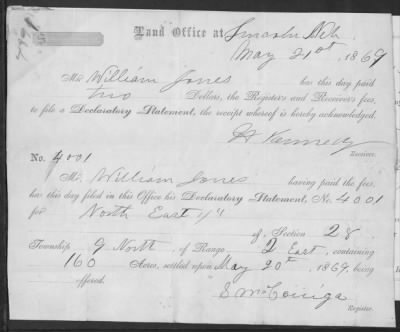 Land Office at Lincoln Neb
May 21st, 1869
Mr. William Jones has this day paid
two Dollars, the Register's and Receiver's fees,
to file a Declaratory Statement, the receipt whereof is hereby acknowledged.
Kennedy
Receiver.
No. 4001
Mr. William Jones having paid the fees,
has this day filed in this Office his Declaratory Statement, No. 4001
for North East 1/4
of Section 28
Township 9 North, of Range 2 East, containing
160 Acres, settled upon May 20th, 1869, being
offered.
S McConiga
Register.